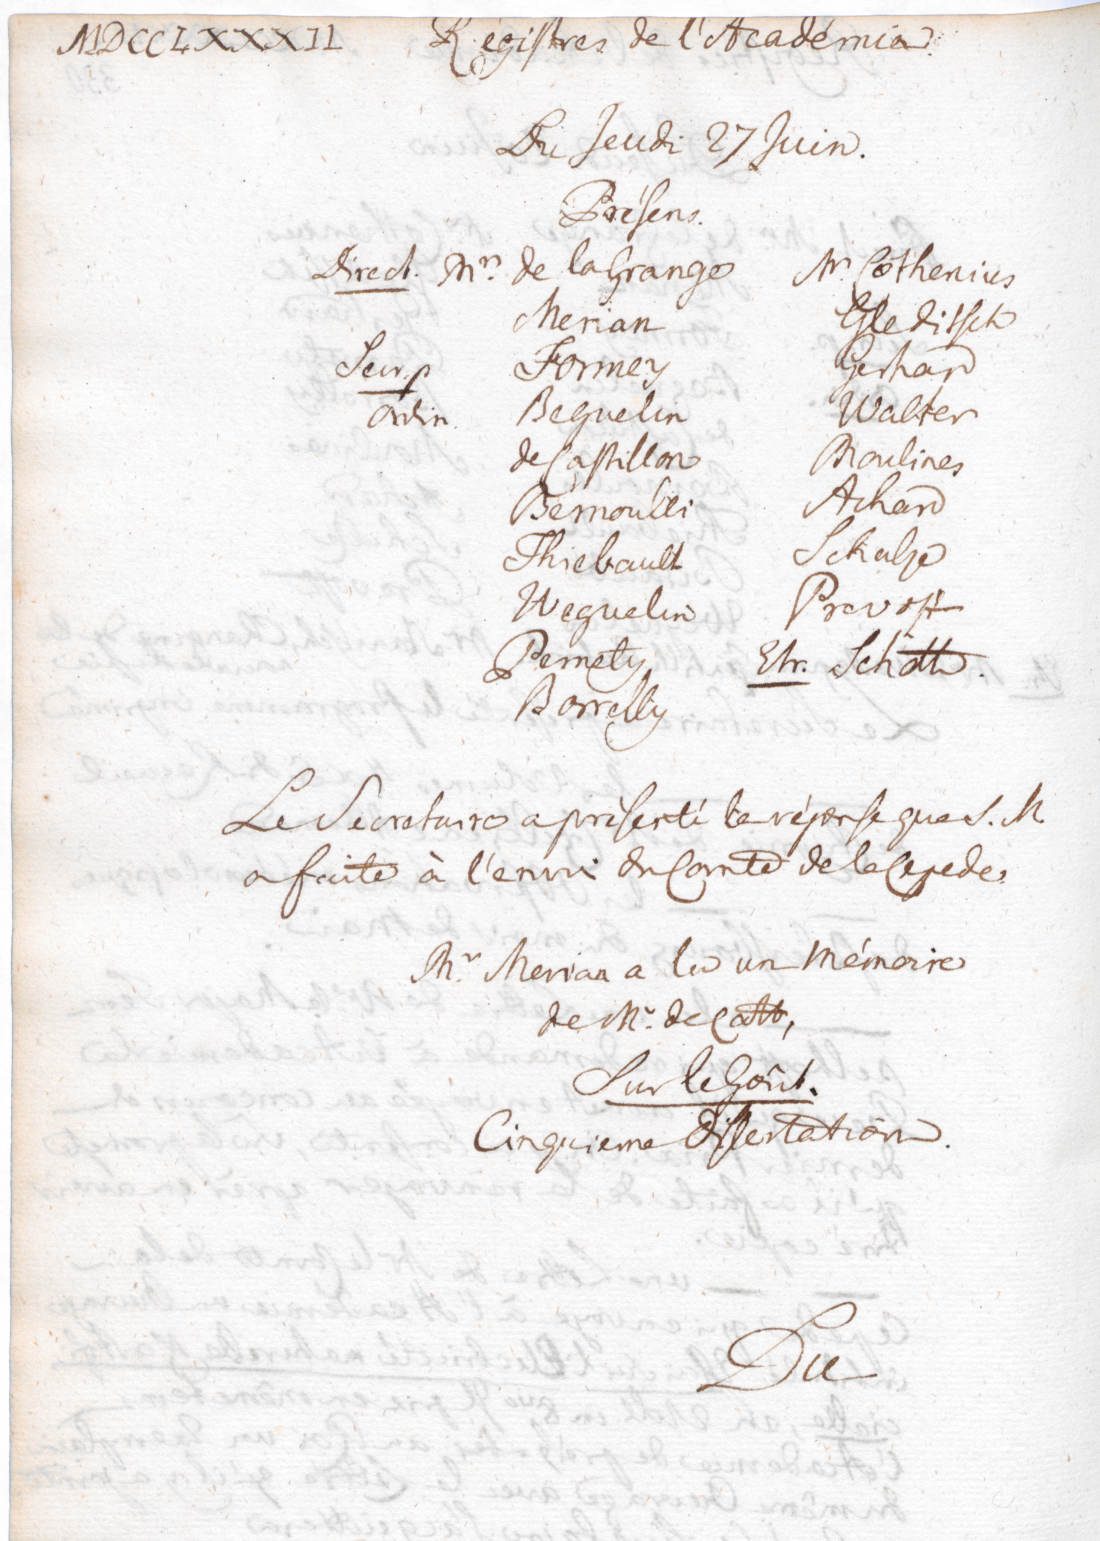 MDCCLXXXII Régistres de l'Académie.
Du Jeudi 27 Juin.
Présens.
Direct. Mrs. de la Grange Mr. Cothenius
Merian Gleditsch
Secr. p Formey Gerhard
Ordin. Beguelin Walter
de Castillon Moulines
Bernoulli Achard
Thiebault Schulze
Weguelin Prevost
Pernety Etr. Schott.
Borrelly
Le Secretaire a présenté la réponse que S. M.
a faite à l'envoi du Comte de la Cepede.
Mr. Merian a lu un Mémoire
de Mr. de Catt,
Sur le Goût.
Cinquieme Dissertation.
Du